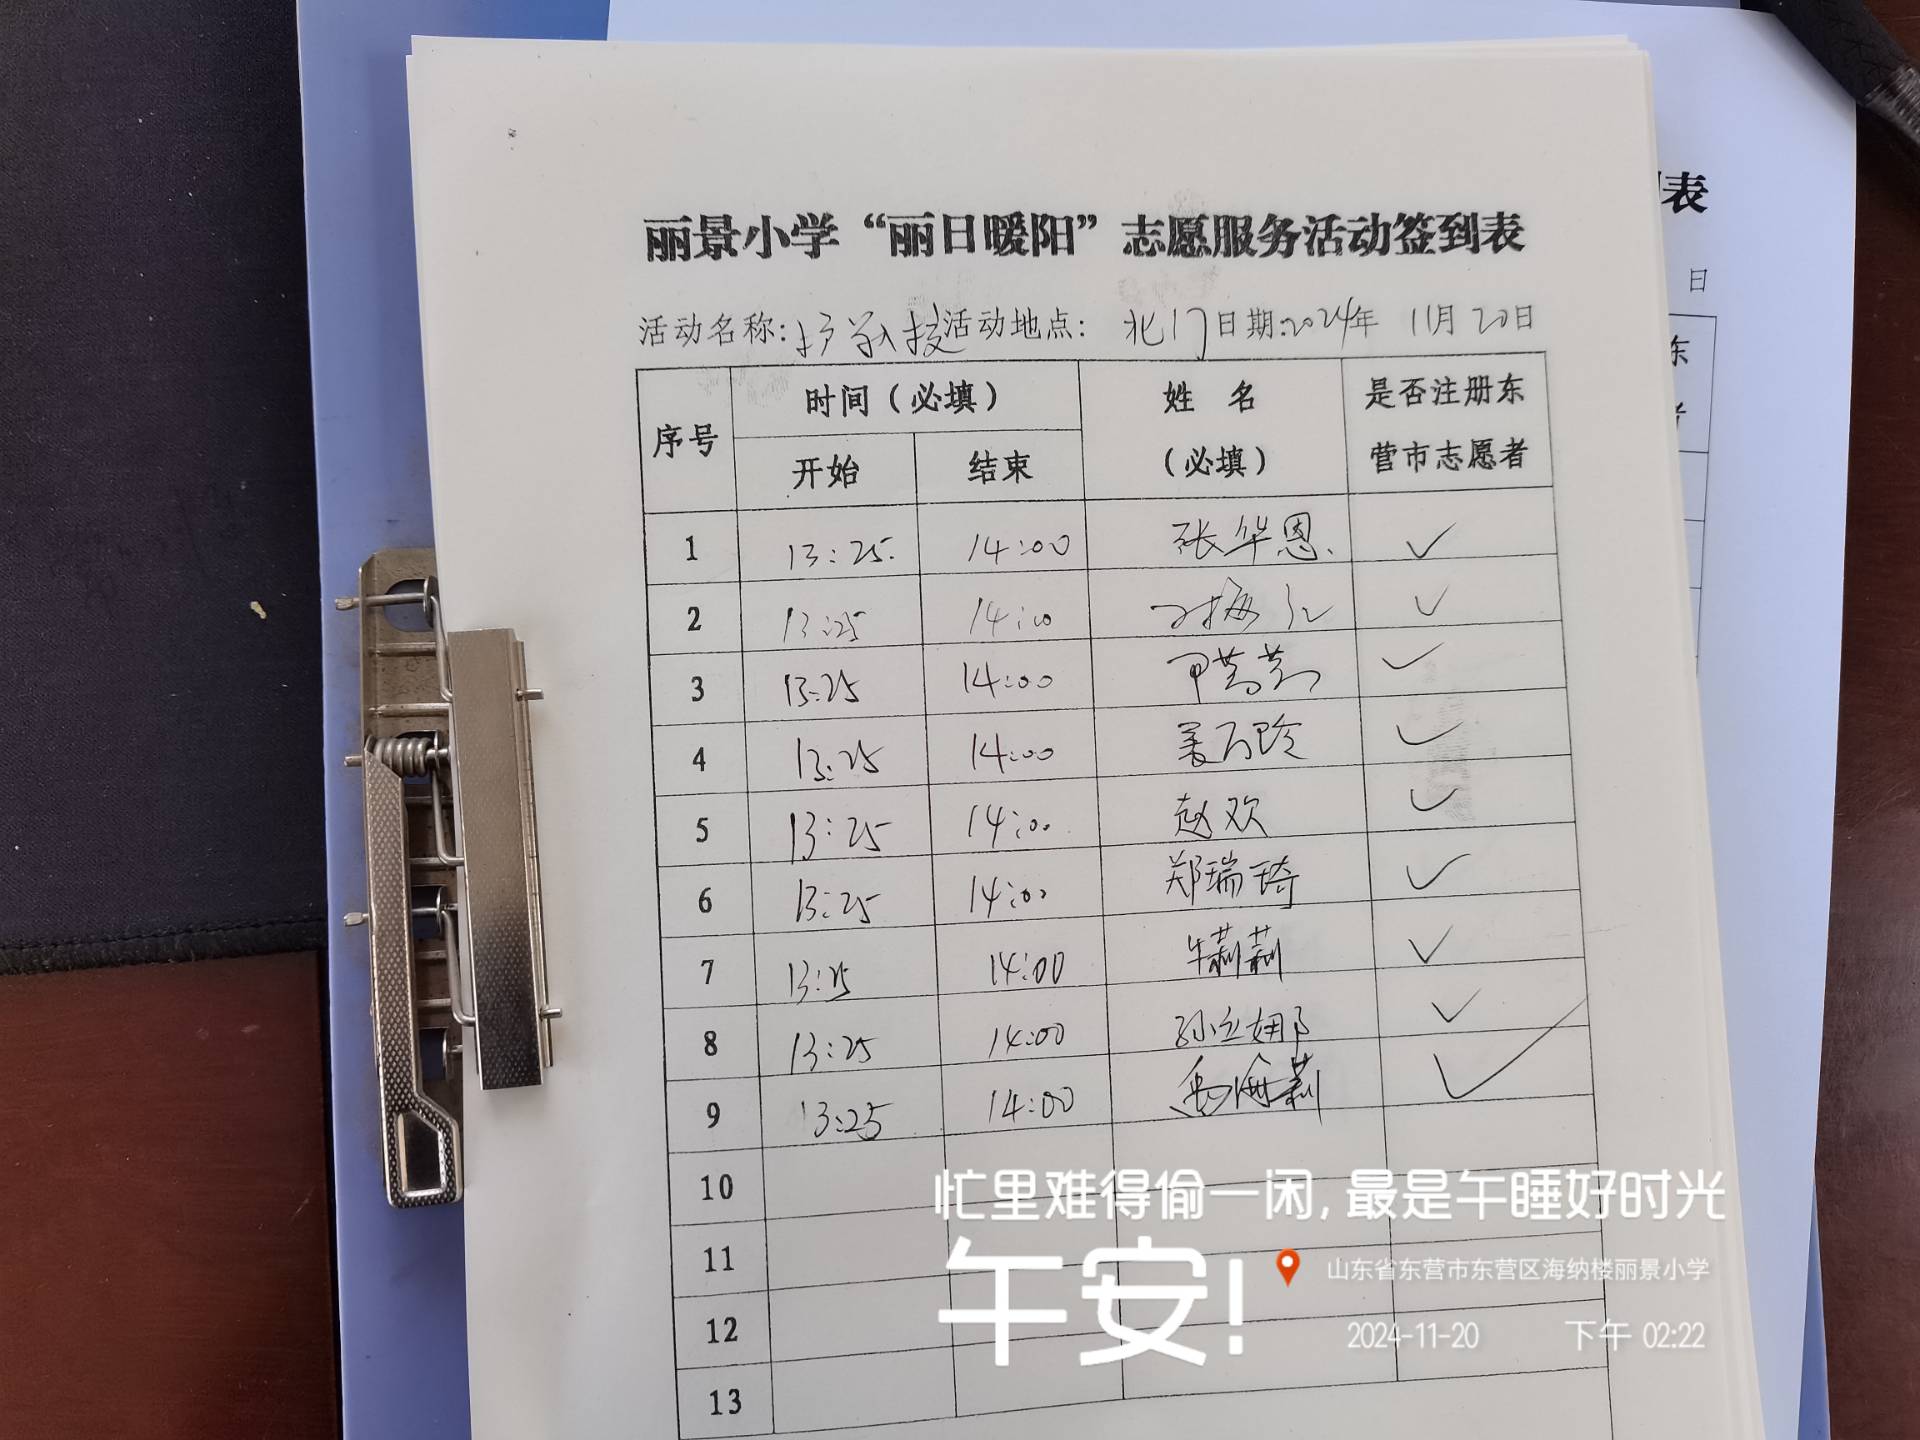 丽景小学“丽日暖阳”志愿服务活动签到表
活动名称:护学入校 活动地点: 北门 日期:2024年 11月20日
序号 时间(必填) 姓 名 (必填) 是否注册东营市志愿者
开始 结束
1 13:25. 14:00 张华恩 ✓
2 13:25 14:00 ✓
3 13:25 14:00 ✓
4 13:25 14:00 姜巧玲 ✓
5 13:25 14:00 赵欢 ✓
6 13:25 14:00 郑瑞琦 ✓
7 13:25 14:00 牛莉莉 ✓
8 13:25 14:00 孙立娜 ✓
9 13:25 14:00 ✓
10
11
12
13
到表
日
东
忙里难得偷一闲,最是午睡好时光
午安!
山东省东营市东营区海纳楼丽景小学
2024-11-20 下午 02:22